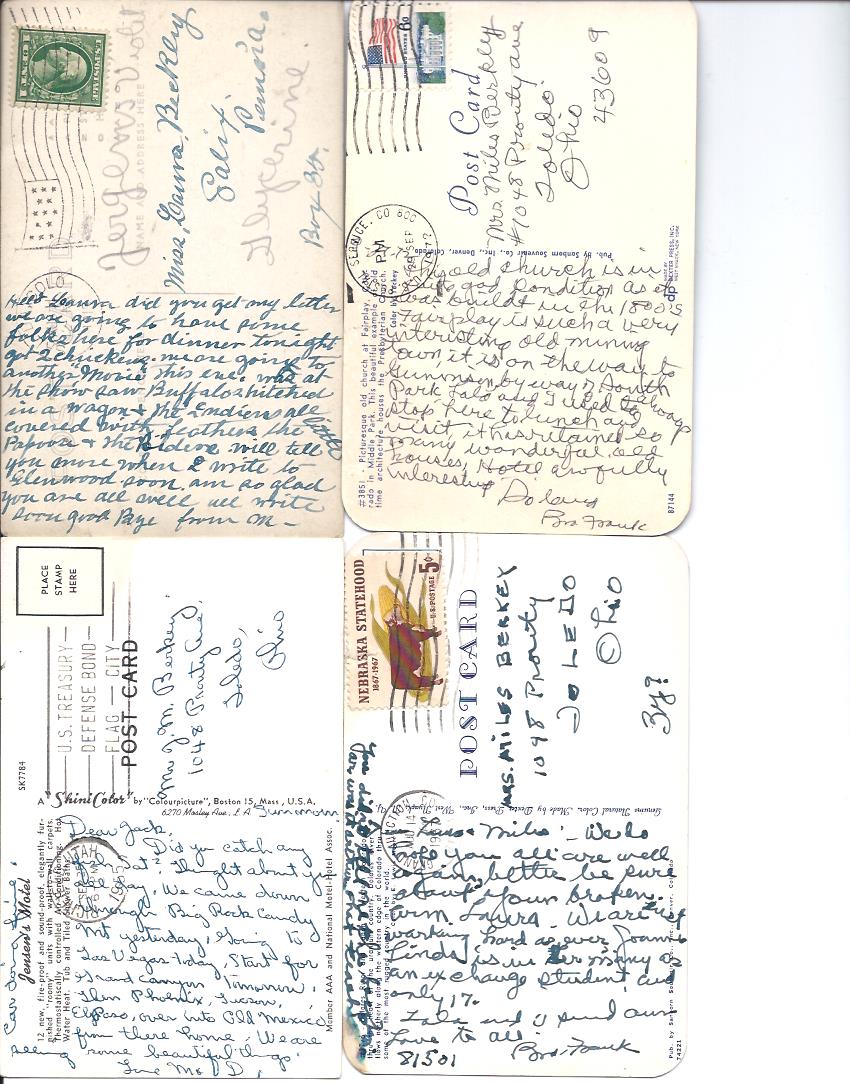 U.S. POSTAGE
1 CENT 1
Jorgens Violet
Glycerine
NAME AND ADDRESS HERE
Miss, Laura, Beckley
Salix
Penna.
Box 30.
COLO
Hello Laura did you get my letter
we are going to have some
folks here for dinner tonight
got 2 chickens. we are going to
another "Movie" this eve. was at
the show saw Buffalos hitched
in a wagon & the Endiens all
covered with feathers the
Papoos & the
will tell
you more when I write to
Glenwood soon. am so glad
you are all well all write
soon good Bye from
6c
Post Card
Mrs. Miles Berkley
#1048 Prouty ave
Toledo
Ohio
43609
SERVICE, CO 800
PM
29 SEP
1972
Pub. By Sanborn Souvenir Co., Inc., Denver, Colorado
dp DEXTER PRESS, INC.
WEST NYACK, NEW YORK
#3851 - Picturesque old church at Fairplay, Colo-
rado in Middle Park. This beautiful example of old
time architecture houses the Presbyterian Church.
87144
old church is in
good condition as it
was built in the 1800's
Fairplay is such a very
interesting old mining
town it is on the way to
Gunnison by way of South
Park Lala and I used to always
stop here to lunch and
visit it has retained so
many wonderful old
houses, Hotel awfully
interesting
So long
Bro Frank
PLACE
STAMP
HERE
U.S. TREASURY
DEFENSE BOND
FLAG — CITY
POST CARD
Mr J. M. Berkey,
1048 Prouty Ave.,
Toledo,
Ohio
SK7784
A "ShiniColor" by "Colourpicture", Boston 15, Mass., U.S.A.
6270 Mosley Ave., L. A.
Jensen's Motel
12 new, fire-proof and sound-proof, elegantly fur-
nished "roomy" units with wall-to-wall carpets.
Thermostatically controlled Air-Conditioning. Hot
Water Heat. Tub and Tiled Shower Baths.
Member AAA and National Motel-Hotel Assoc.
UTAH
1955
Dear Jack,
Did you catch any
fish Sat? Thought about you
all day. We came down
through Big Rock Candy
Mt yesterday, Going to
Las Vegas today. Start for
Grand Canyon Tomorrow.
Then Phoenix, Tucson,
El Paso, over into Old Mexico
from there home. We are
seeing some beautiful things.
Love M & D,
Car doing fine.
NEBRASKA STATEHOOD
1867-1967
5c
U.S. POSTAGE
POST CARD
MRS. MILES BERKEY
1048 Prouty
TOLEDO
Ohio
Zip?
GRAND JUNCTION
Genuine Natural Color. Made by Dexter Press, Inc., West Nyack, N.Y.
Laura & Miles:- We do
hope you all are well
again, better be sure
about your broken
arm Laura. We are
working hard as ever Joann &
Linda is in Germany as
an exchange student and
only 17.
Lala and I send our
love to all.
Bro. Frank
81501
74221